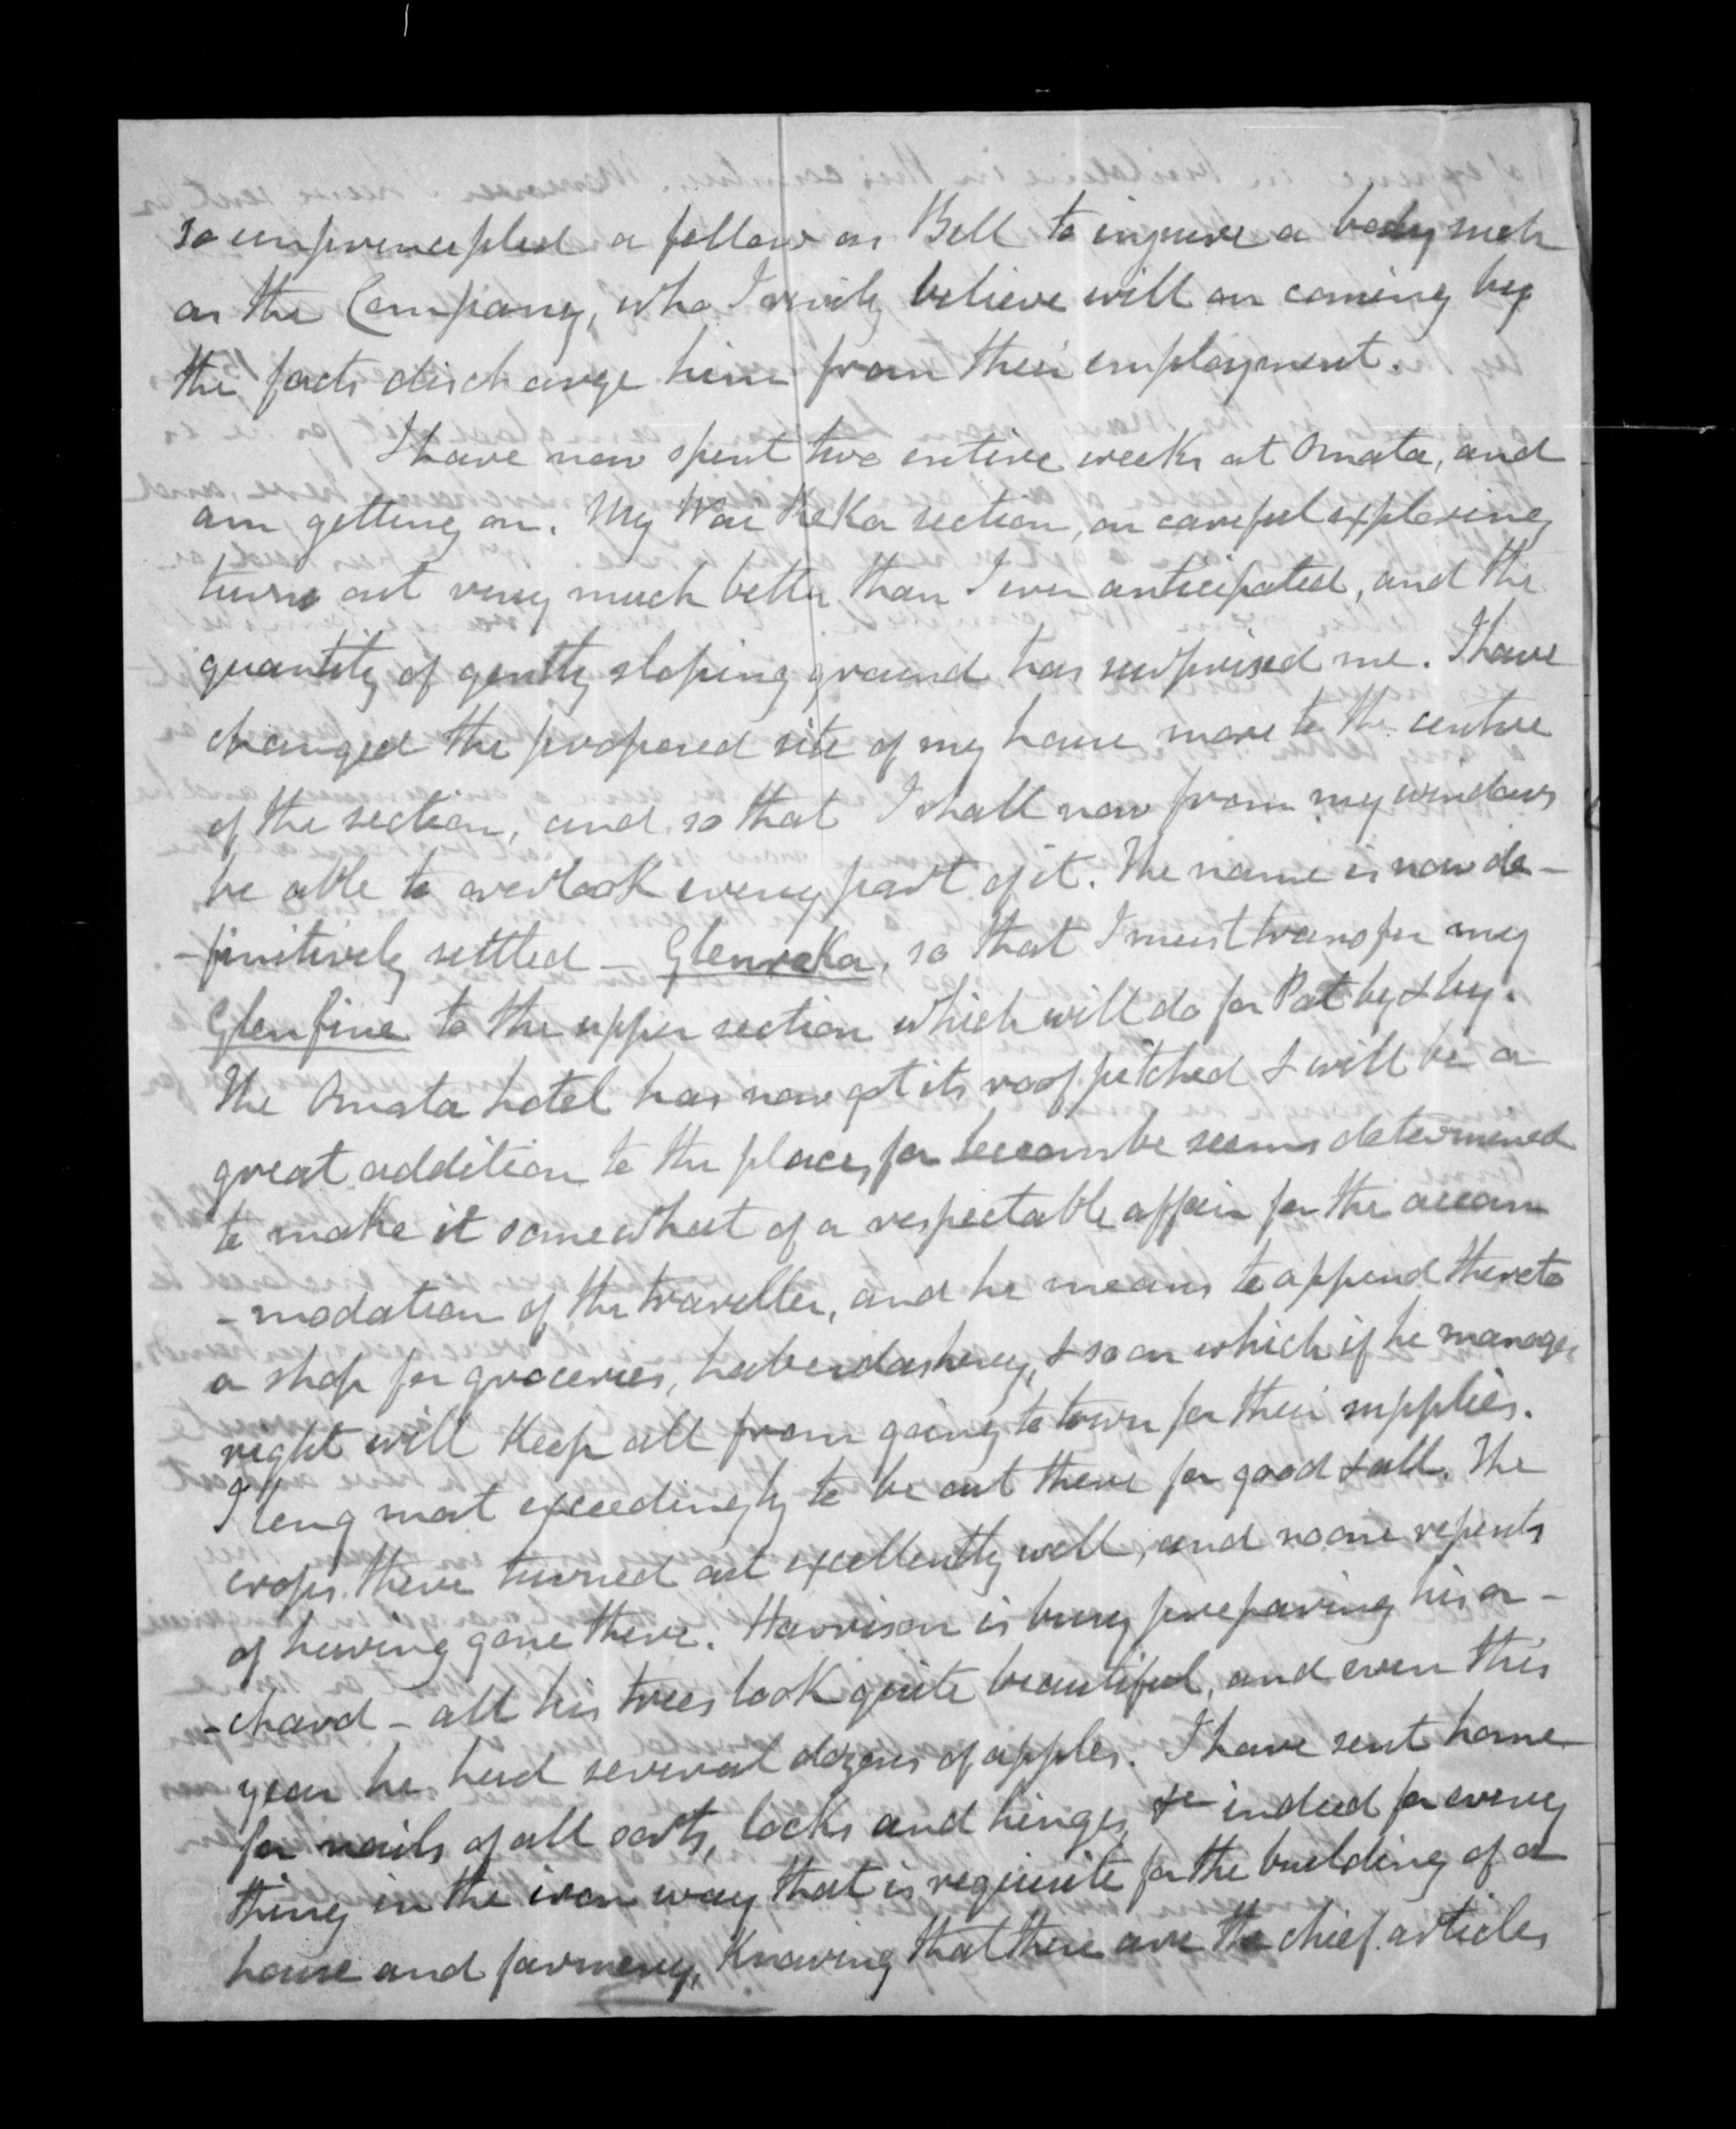 so unprincipled a fellow as Bell to injure a body such
as the Company, who I verily believe will on coming by
the facts discharge him from their employment.
I have now spent two entire weeks at Omata, and
am getting on. My Wai Reka section, on careful exploring
turns out very much better than I even anticipated, and the
quantity of gently sloping ground has surprised me. I have
changed the proposed site of my house more to the centre
of the section, and so that I shall now from my windows
be able to overlook every part of it. The name is now de-
-finitively settled - Glenreka, so that I must transfer my
Glenfine to the upper section which will do for Pat by & by.
The Omata hotel has now got its roof pitched & will be a
great addition to the place, for seems determined
to make it somewhat of a respectable affair for the accom
-modation of the traveller, and he means to append thereto
a shop for groceries, haberdashery, & so on which if he manages
right will keep all from going to town for their supplies.
I long most exceedingly to be out there for good & all. The
crops there turned out excellently well, and no one repents
of having gone there. Harrison is busy preparing his or-
-chard - all his trees look quite beautiful, and even this
year he had several dozens of apples. I have sent home
for nails of all sorts, locks and hinges, &c indeed for every
thing in the iron way that is requisite for the building of a
house and farmery, Knowing that these are the chief articles